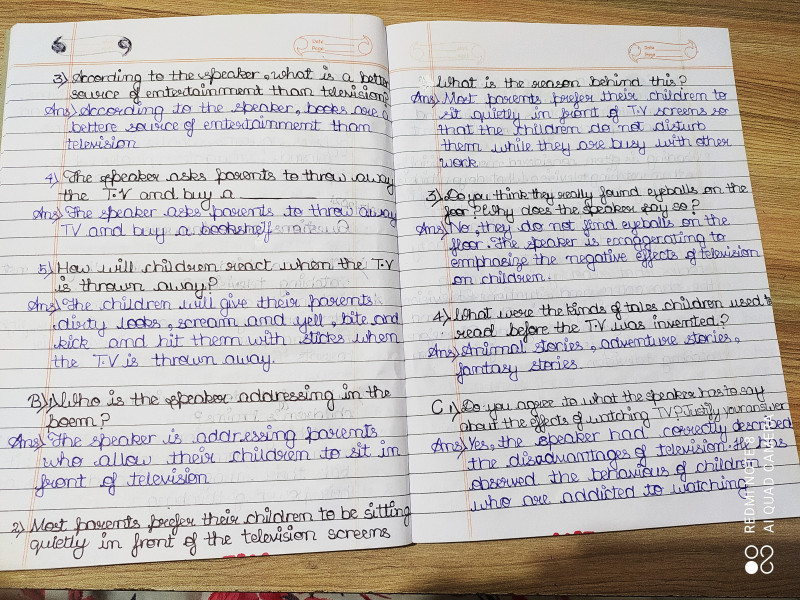 Date
Page
3) According to the speaker, what is a better
source of entertainment than television?
Ans) According to the speaker, books are a
bettere source of entertainment than
television
4) The speaker asks parents to throw away
the T.V and buy a
Ans) The speaker asks parents to throw away
TV and buy a bookshelf
5) How will children react when the T.V
is thrown away?
Ans) The children will give their parents
dirty looks, scream and yell, bite and
kick and hit them with sticks when
the T.V is thrown away.
B) 1) Who is the speaker addressing in the
poem?
Ans) The speaker is addressing parents
who allow their children to sit in
front of television
2) Most parents prefer their children to be sitting
quietly in front of the television screens
Date
Page
What is the reason behind this?
Ans) Most parents prefer their children to
sit quietly in front of T.V screens so
that the children do not disturb
them while they are busy with other
work
3) Do you think they really found eyeballs on the
floor? Why does the speaker say so?
Ans) No, they do not find eyeballs on the
floor. The speaker is exaggerating to
emphasize the negative effects of television
on children.
4) What were the kinds of tales children used to
read before the T.V was invented?
Ans) Animal stories, adventure stories,
fantasy stories.
C 1) Do you agree to what the speaker has to say
about the effects of watching TV? Justify your answer
Ans) Yes, the speaker had correctly described
the disadvantages of television. He
observed the behaviour of children
who are addicted to watching
REDMI NOTE 8
AI QUAD CAMERA